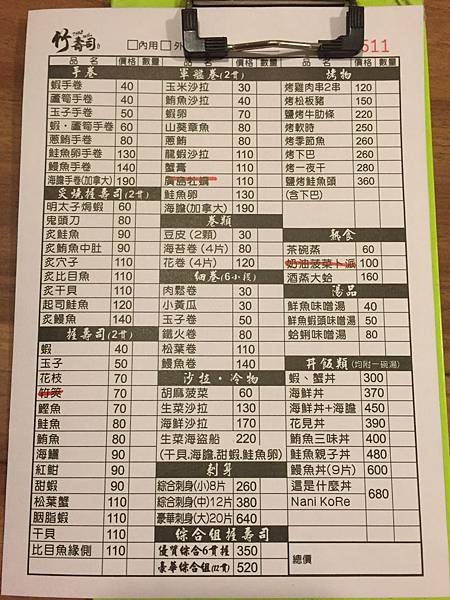 竹壽司
□內用 □外
511
品 名 價格 數量
手卷
蝦手卷 40
蘆筍手卷 40
玉子手卷 50
蝦・蘆筍手卷 60
蔥鮪手卷 80
鮭魚卵手卷 130
鰻魚手卷 140
海膽手卷(加拿大) 190
炙燒握壽司(2貫)
明太子焗蝦 60
鬼頭刀 80
炙鮭魚 90
炙鮪魚中肚 90
炙穴子 110
炙比目魚 110
炙干貝 110
起司鮭魚 120
炙鰻魚 140
握壽司(2貫)
蝦 40
玉子 50
花枝 70
竹筴 70
鰹魚 70
鮭魚 80
鮪魚 80
海鱺 90
紅魽 90
甜蝦 90
松葉蟹 110
胭脂蝦 110
干貝 110
比目魚緣側 110
品 名 價格 數量
軍艦卷(2貫)
玉米沙拉 30
鮪魚沙拉 40
蝦卵 70
山葵章魚 80
蔥鮪 80
龍蝦沙拉 110
蟹膏 110
廣島牡蠣 110
鮭魚卵 130
海膽(加拿大) 190
卷類
豆皮 (2顆) 30
海苔卷 (4片) 80
花卷 (4片) 120
細卷(6小段)
肉鬆卷 30
小黃瓜 30
玉子卷 50
鐵火卷 80
松葉卷 110
鰻魚卷 140
沙拉・冷物
胡麻菠菜 60
生菜沙拉 130
海鮮沙拉 170
生菜海盜船 220
(干貝.海膽.甜蝦.鮭魚卵)
刺身
綜合刺身(小)8片 260
綜合刺身(中)12片 380
豪華刺身(大)20片 640
綜合組握壽司
優質綜合6貫握 350
豪華綜合組(12貫) 520
品 名 價格 數量
烤物
烤雞肉串2串 120
烤松板豬 150
鹽烤牛肋條 220
烤軟絲 250
烤季節魚 260
烤下巴 260
烤一夜干 280
鹽烤鮭魚頭 360
(含下巴)
熱食
茶碗蒸 60
奶油菠菜卜派 100
酒蒸大蛤 160
湯品
鮮魚味噌湯 40
鮮魚蝦頭味噌湯 50
蛤蜊味噌湯 80
丼飯類 (均附一碗湯)
蝦、蟹丼 300
海鮮丼 370
海鮮丼+海膽 450
花見丼 390
鮪魚三味丼 400
鮭魚親子丼 480
鰻魚丼(9片) 600
這是什麼丼 680
Nani KoRe
總價